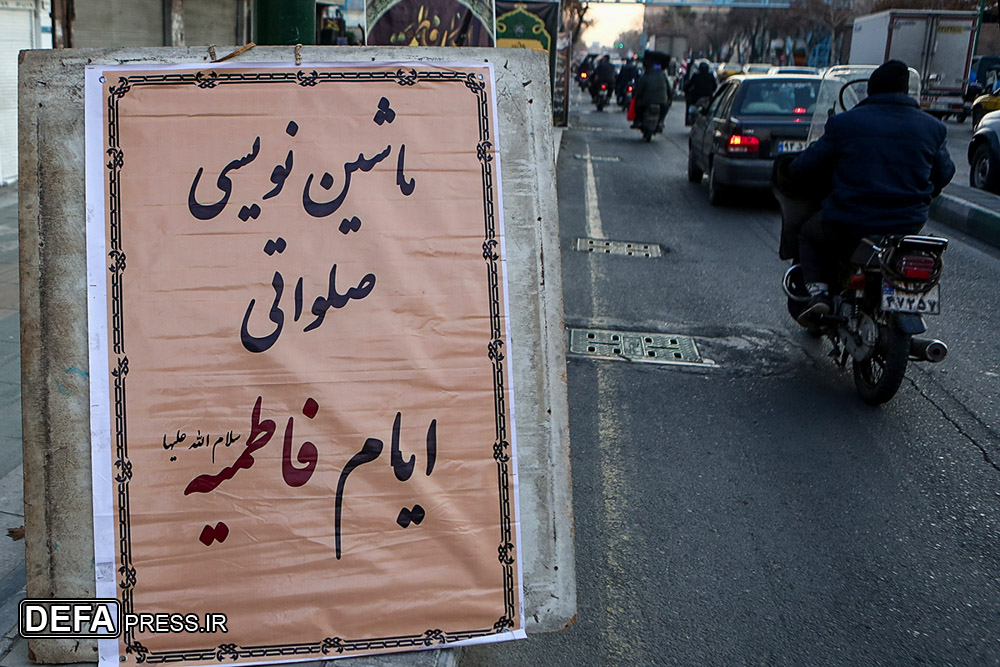 ماشین نویسی
صلواتی
ایام فاطمیه سلام الله علیها
DEFAPRESS.IR